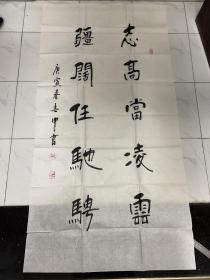 志高當凌雲
疆闊任馳騁
庚寅春志甲書